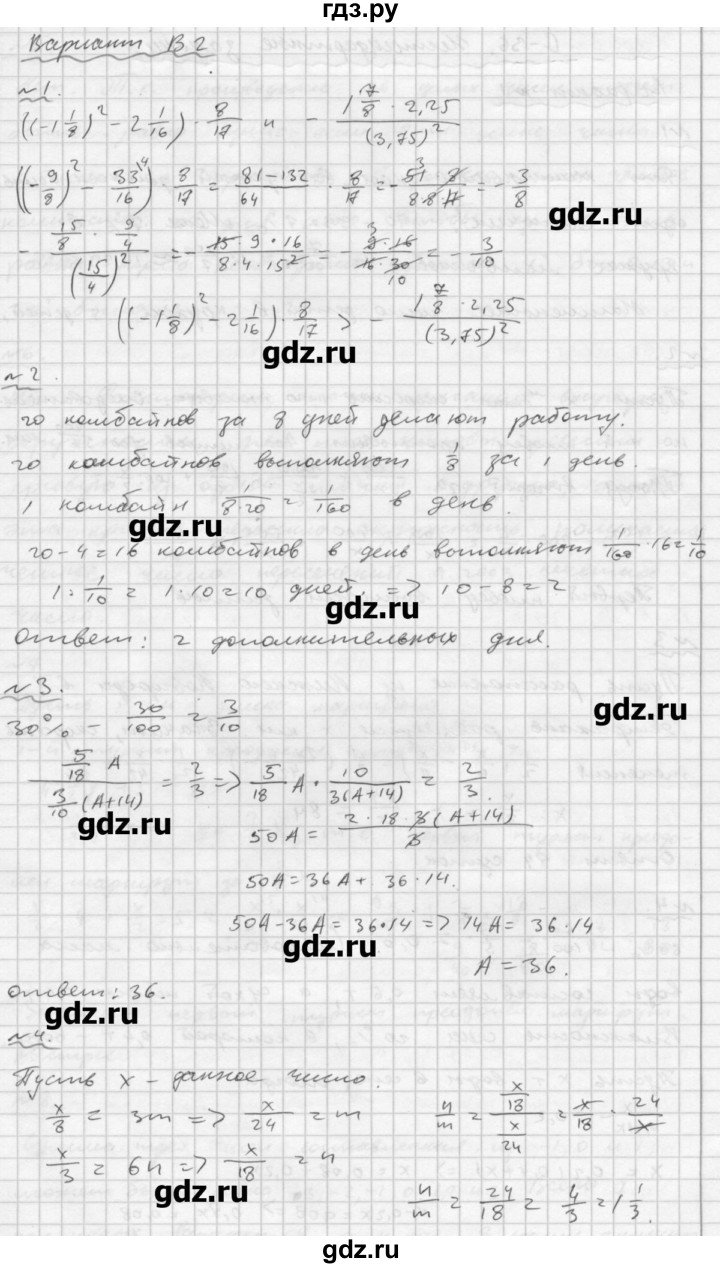 гдз.ру
Вариант В2
№1.
((-1 1/8)² - 2 1/16) · 8/17 и - (1 7/8 · 2,25)/(3,75)²
((-9/8)² - 33/16 \4) · 8/17 = (81-132)/64 · 8/17 = - (51 · 8)/(8·8·17) 3 = - 3/8
- (15/8 · 9/4)/(15/4)² = - (15 · 9 · 16)/(8 · 4 · 15²) = - (9 · 16)/(16 · 30) 3 10 = - 3/10
gdz.ru
((-1 1/8)² - 2 1/16) · 8/17 > - (1 7/8 · 2,25)/(3,75)²
gdz.ru
№2.
20 комбайнов за 8 дней делают работу.
20 комбайнов выполняют 1/8 за 1 день.
1 комбайн 1/(8·20) = 1/160 в день.
gdz.ru
20-4=16 комбайнов в день выполняют 1/160 · 16 = 1/10
1 : 1/10 = 1·10=10 дней, => 10-8=2
gdz.ru
Ответ: 2 дополнительных дня.
№3.
gdz.ru
30% - 30/100 = 3/10
(5/18 A)/(3/10 (A+14)) = 2/3 => 5/18 A · 10/(3(A+14)) = 2/3.
gdz.ru
50A = (2 · 18 · 3(A+14))/3
50A = 36A + 36·14.
50A-36A = 36·14 => 14A = 36·14
gdz.ru
A = 36.
Ответ: 36.
gdz.ru
№4.
Пусть x - данное число.
x/8 = 3m => x/24 = m
n/m = (x/18)/(x/24) = x/18 · 24/x
x/3 = 6n => x/18 = n
gdz.ru
n/m = 24/18 = 4/3 = 1 1/3.
gdz.ru